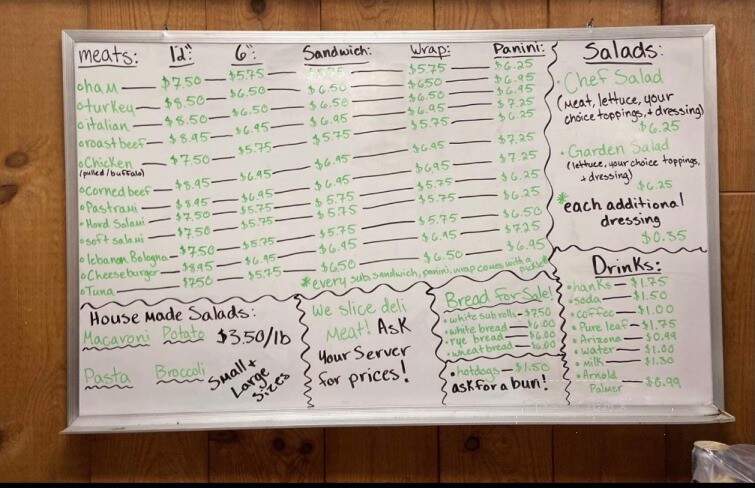 meats: 12": 6": Sandwich: Wrap: Panini:
ham — $7.50 — $5.75 — — $5.75 — $6.25
turkey — $8.50 — $6.50 — $6.50 — $6.50 — $6.95
italian — $8.50 — $6.50 — $6.50 — $6.50 — $6.95
roast beef — $8.95 — $6.95 — $6.95 — $6.95 — $7.25
Chicken — $7.50 — $5.75 — $5.75 — $5.75 — $6.25
(pulled/buffalo)
Corned beef — $8.95 — $6.95 — $6.95 — $6.95 — $7.25
Pastrami — $8.95 — $6.95 — $6.95 — $6.95 — $7.25
Hard Salami — $7.50 — $5.75 — $5.75 — $5.75 — $6.25
soft salami — $7.50 — $5.75 — $5.75 — $5.75 — $6.25
lebanon Bologna — $7.50 — $5.75 — $5.75 — $5.75 — $6.50
Cheeseburger — $8.95 — $6.95 — $6.95 — $6.95 — $7.25
Tuna — $7.50 — $5.75 — $6.50 — $6.50 — $6.95
*every sub, sandwich, panini, wrap comes with a pickle!
Salads:
Chef Salad
(Meat, lettuce, your
choice toppings, + dressing)
$6.25
Garden Salad
(lettuce, your choice toppings,
+ dressing)
$6.25
*each additional
dressing
$0.35
House Made Salads:
Macaroni Potato $3.50/lb
Pasta Broccoli
Small +
Large
Sizes
We slice deli
Meat! Ask
Your Server
for prices!
Bread for Sale!
white sub rolls — $7.50
white bread — $6.00
rye bread — $6.00
wheat bread — $6.00
hotdogs — $1.50
ask for a bun!
Drinks:
hanks — $1.75
soda — $1.50
coffee — $1.00
Pure leaf — $1.75
Arizona — $0.99
water — $1.00
milk — $1.50
Arnold
Palmer — $0.99